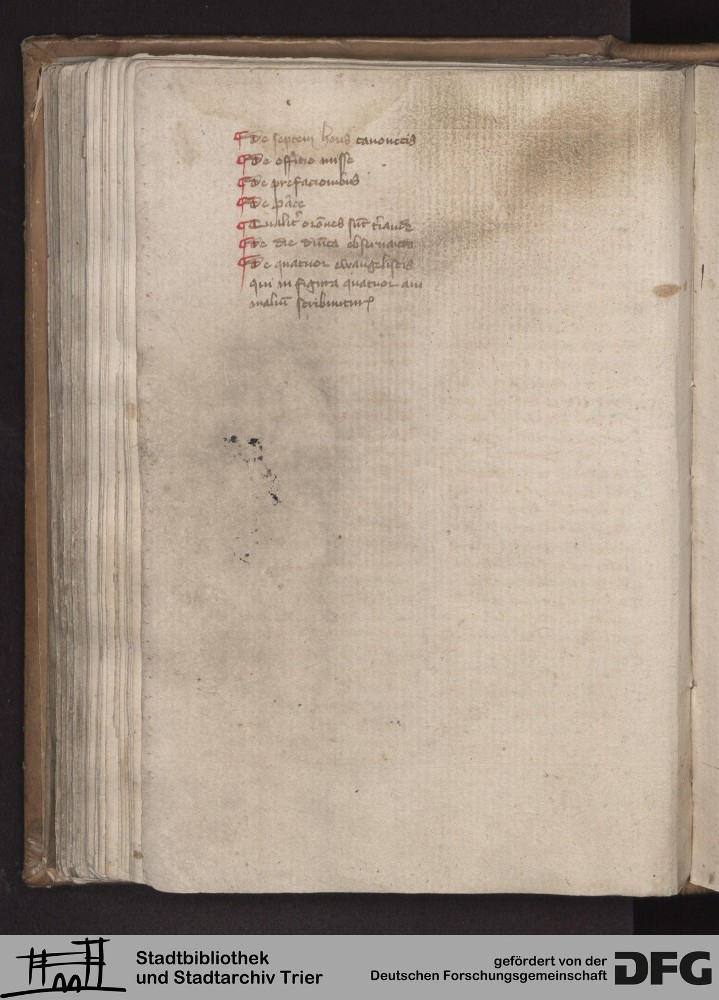 De septem horis canonicis
De officio misse
De prefacionibus
De pace
Qualit̄ or̄ones sūt
De die dn̄ica
De quatuor ewangelistis
qui in figura quatuor ani
maliū scribuntur
Stadtbibliothek
und Stadtarchiv Trier
gefördert von der
Deutschen Forschungsgemeinschaft
DFG